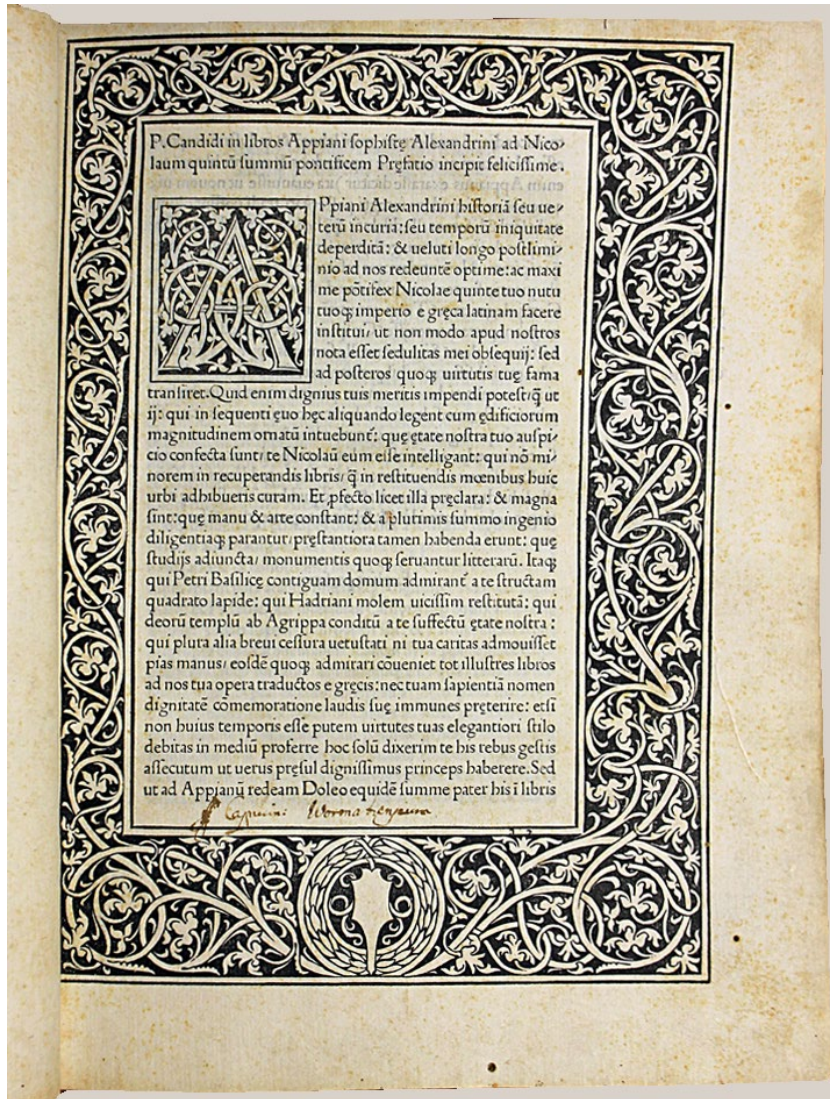 P.Candidi in libros Appiani sophistę Alexandrini ad Nico-
laum quintū summū pontificem Pręfatio incipit felicissime.
APpiani Alexandrini historiā seu ue-
terū incuria: seu temporū iniquitate
deperditā: & ueluti longo postlimi-
nio ad nos redeuntē optime: ac maxi
me pōtifex Nicolae quinte tuo nutu
tuoq; imperio e gręca latinam facere
institui, ut non modo apud nostros
nota esset sedulitas mei obsequij: sed
ad posteros quoq; uirtutis tuę fama
transiret. Quid enim dignius tuis meritis impendi potest: q̄ ut
ij: qui in sequenti ęuo hęc aliquando legent cum ędificiorum
magnitudinem ornatū intuebunt̄: quę ętate nostra tuo auspi-
cio confecta sunt/ te Nicolaū eum esse intelligant: qui nō mi-
norem in recuperandis libris/ q̄ in restituendis mœnibus huic
urbi adhibueris curam. Et ꝓfecto licet illa pręclara: & magna
sint: quę manu & arte constant: & a plurimis summo ingenio
diligentiaq; parantur/ pręstantiora tamen habenda erunt: quę
studijs adiuncta/ monumentis quoq; seruantur litterarū. Itaq;
qui Petri Basilicę contiguam domum admirant̄ a te structam
quadrato lapide: qui Hadriani molem uicissim restitutā: qui
deorū templū ab Agrippa conditū a te suffectū ętate nostra:
qui plura alia breui cessura uetustati ni tua caritas admouisset
pias manus/ eosdē quoq; admirari cōueniet tot illustres libros
ad nos tua opera traductos e gręcis: nec tuam sapientiā nomen
dignitatē cōmemoratione laudis suę immunes pręterire: etsi
non huius temporis esse putem uirtutes tuas elegantiori stilo
debitas in mediū proferre hoc solū dixerim te his rebus gestis
assecutum ut uerus pręsul dignissimus princeps haberere. Sed
ut ad Appianū redeam Doleo equidē summe pater his ī libris